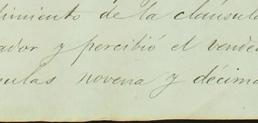 dimiento de la clausula
ador y percibió el vende
sulas novena y décima